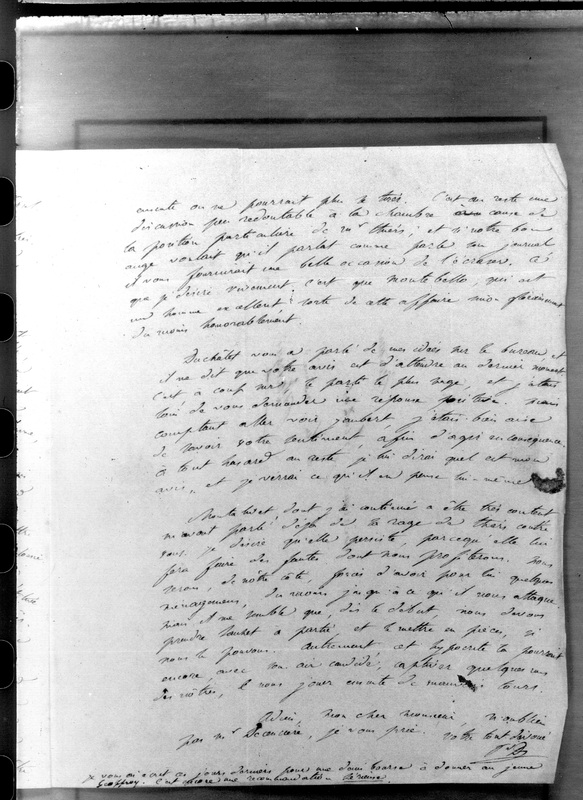 ensuite on ne pourrait plus le tirer. C'est au reste une
discussion peu redoutable à la chambre à cause de
la position particulière de Mr Thiers; et si notre bon
ange voulait qu'il parlât comme parle son journal
il vous fournirait une belle occasion de l'écraser. Ce
que je désire vivement c'est que Montebello, qui est
un homme excellent, sorte de cette affaire sinon glorieusement
du moins honorablement.
Duchâtel vous a parlé de mes idées sur le bureau et
il me dit que votre avis est d'attendre au dernier moment
c'est à coup sûr le parti le plus sage, et j'étais
loin de vous demander une réponse positive. Mais
comptant aller voir Jaubert, j'étais bien aise
de savoir votre sentiment afin d'agir en conséquence.
À tout hasard au reste je lui dirai quel est mon
avis, et je verrai ce qu'il en pense lui-même.
dont j'ai continué à être très content
m'avait parlé déjà de la rage de Thiers contre
vous. Je désire qu'elle persiste, parcequ'elle lui
fera faire des fautes dont nous profiterons. Nous
serons, de notre côté, forcés d'avoir pour lui quelques
ménagemens, du moins jusqu'à ce qu'il nous attaque
mais il me semble que, dès le début, nous devons
prendre à partie et le mettre en pièces, si
nous le pouvons. Autrement, cet hypocrite là pourrait
encore, avec son air candide, captiver quelques uns
des nôtres, et nous jouer ensuite de mauvais tours.
Adieu, mon cher monsieur, n'oubliez
pas Mr je vous prie. Votre tout dévoué
Je vous ai écrit ces jours derniers pour une demi bourse à donner au jeune
Geoffroy. C'est encore une recommandation